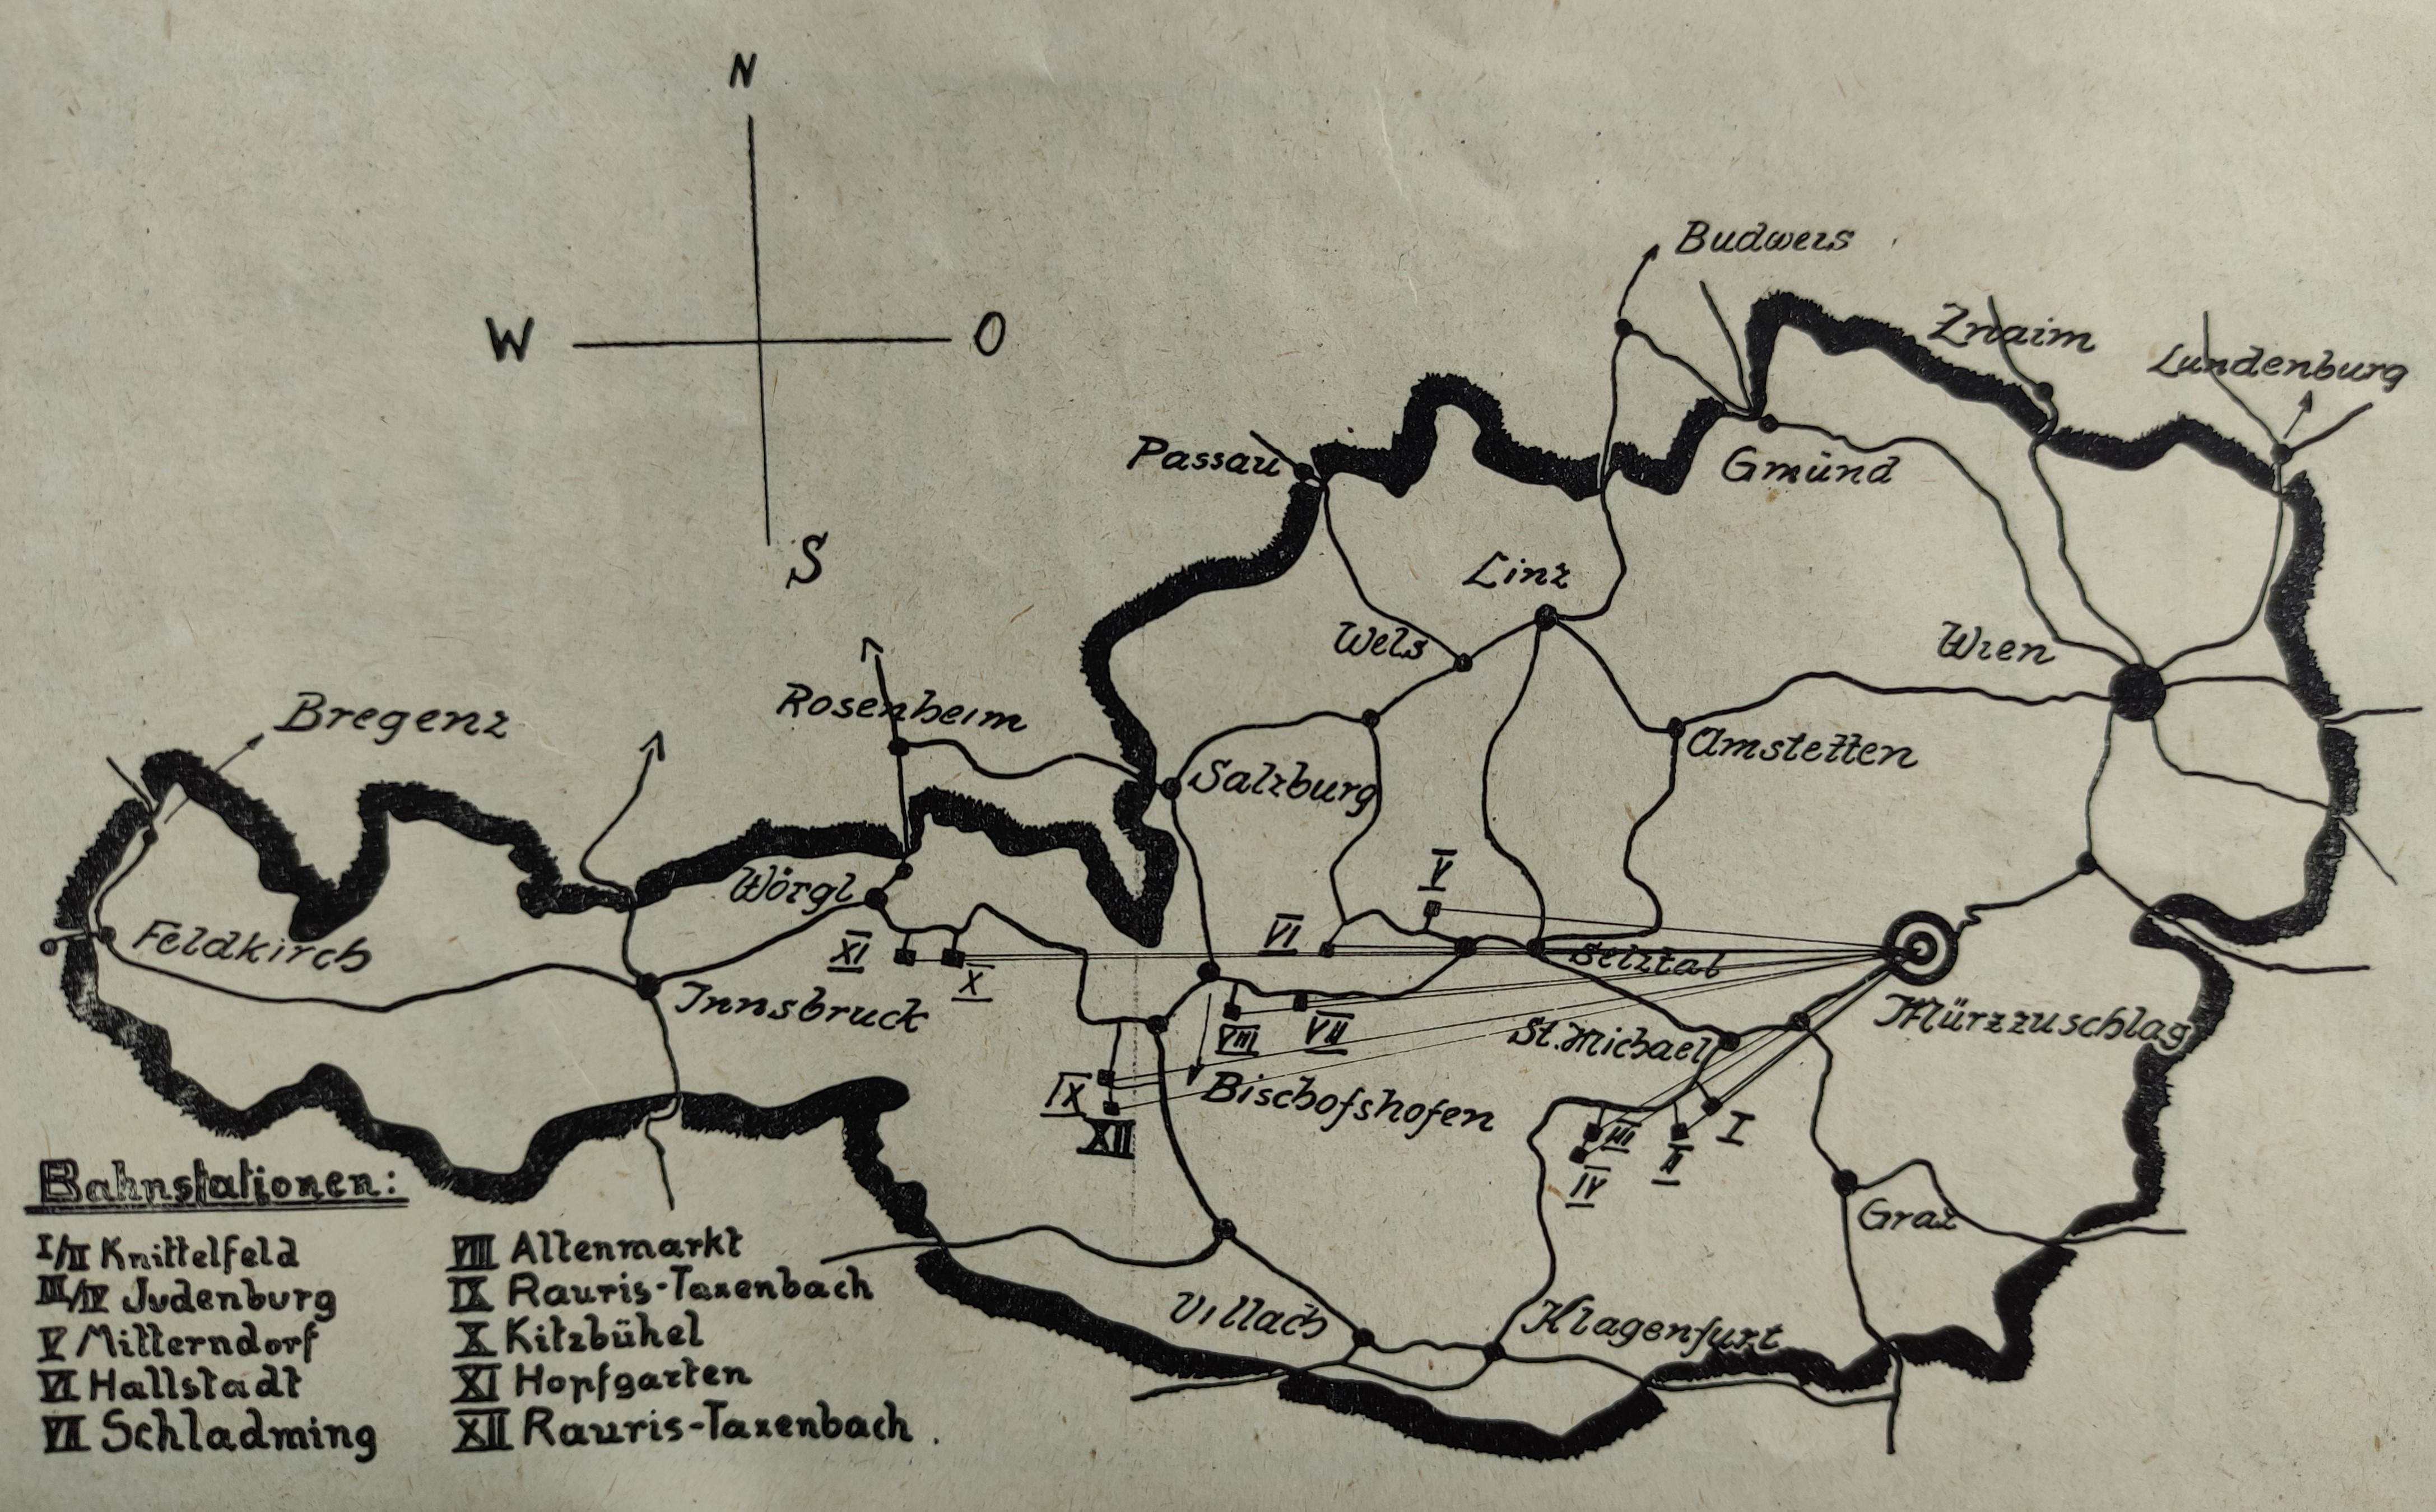 N
W
O
S
Budweis
Znaim
Lundenburg
Passau
Gmünd
Linz
Wels
Wien
Bregenz
Rosenheim
Salzburg
Amstetten
Wörgl
V
Feldkirch
XI
X
VI
Selztal
Innsbruck
VIII
VII
St. Michael
Mürzzuschlag
IX
Bischofshofen
XII
III
II
I
IV
Graz
Villach
Klagenfurt
Bahnstationen:
I/II Knittelfeld
III/IV Judenburg
V Mitterndorf
VI Hallstadt
VII Schladming
VIII Altenmarkt
IX Rauris-Taxenbach
X Kitzbühel
XI Hopfgarten
XII Rauris-Taxenbach.